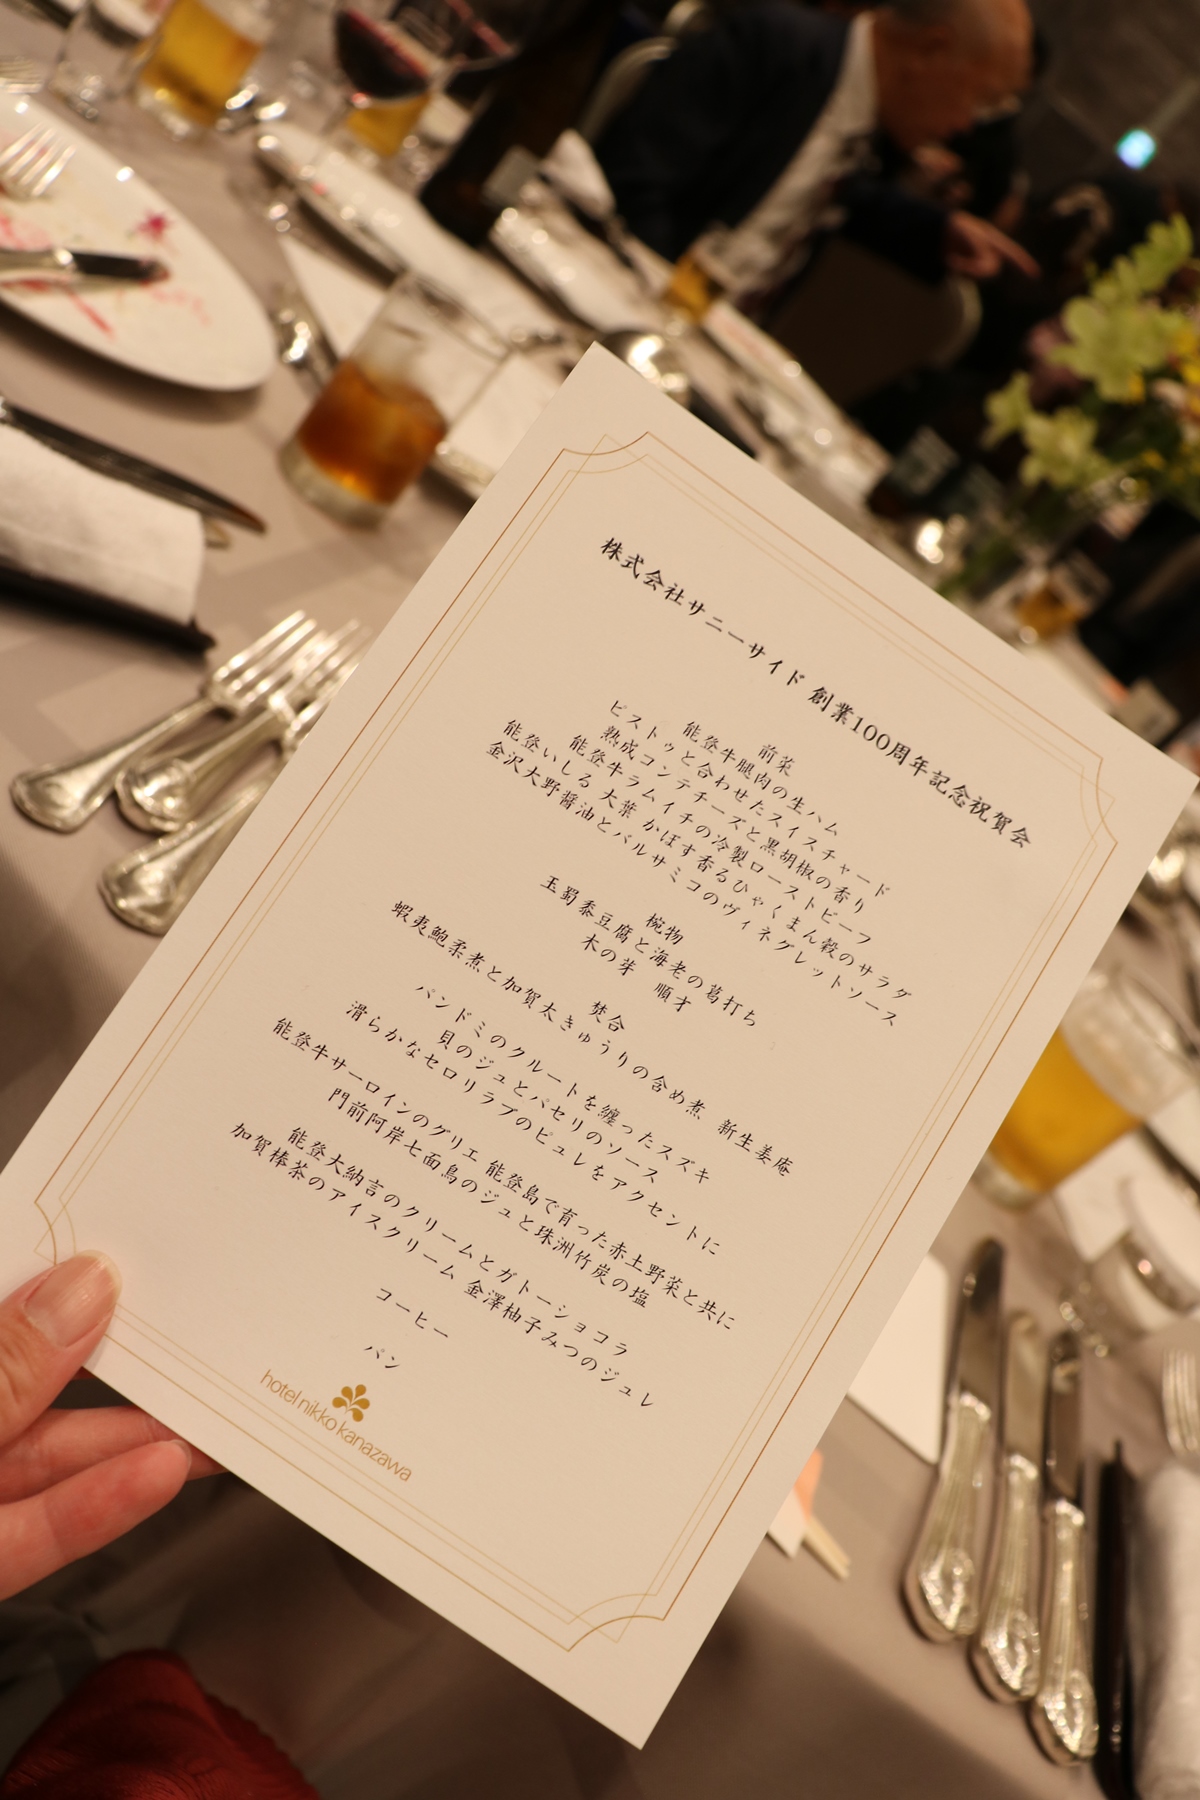 株式会社サニーサイド 創業100周年記念祝賀会
前菜
能登牛腿肉の生ハム
ピストゥと合わせたスイスチャード
熟成コンテチーズと黒胡椒の香り
能登牛ラムイチの冷製ローストビーフ
能登いしる 大葉 かぼす香るひゃくまん穀のサラダ
金沢大野醤油とバルサミコのヴィネグレットソース
椀物
玉蜀黍豆腐と海老の葛打ち
木の芽 順才
焚合
蝦夷鮑柔煮と加賀太きゅうりの含め煮 新生姜庵
パンドミのクルートを纏ったスズキ
貝のジュとパセリのソース
滑らかなセロリラブのピュレをアクセントに
能登牛サーロインのグリエ 能登島で育った赤土野菜と共に
門前阿岸七面鳥のジュと珠洲竹炭の塩
能登大納言のクリームとガトーショコラ
加賀棒茶のアイスクリーム 金澤柚子みつのジュレ
コーヒー
パン
hotel nikko kanazawa